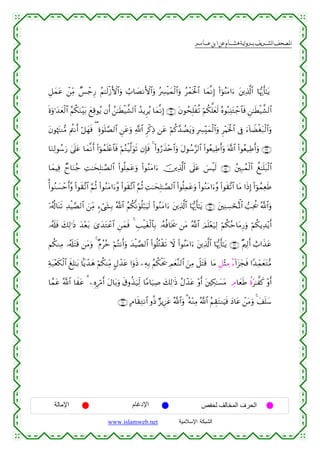 المصحف الشريف برواية هشام عن ابن عامر
يَٰٓأَيُّهَا ٱلَّذِينَ ءَامَنُوٓا۟ إِنَّمَا ٱلْخَمْرُ وَٱلْمَيْسِرُ وَٱلْأَنصَابُ وَٱلْأَزْلَٰمُ رِجْسٌ مِّنْ عَمَلِ
ٱلشَّيْطَٰنِ فَٱجْتَنِبُوهُ لَعَلَّكُمْ تُفْلِحُونَ ۝ إِنَّمَا يُرِيدُ ٱلشَّيْطَٰنُ أَن يُوقِعَ بَيْنَكُمُ ٱلْعَدَٰوَةَ
وَٱلْبَغْضَآءَ فِى ٱلْخَمْرِ وَٱلْمَيْسِرِ وَيَصُدَّكُمْ عَن ذِكْرِ ٱللَّهِ وَعَنِ ٱلصَّلَوٰةِ ۖ فَهَلْ أَنتُم مُّنتَهُونَ
۝ وَأَطِيعُوا۟ ٱللَّهَ وَأَطِيعُوا۟ ٱلرَّسُولَ وَٱحْذَرُوا۟ ۚ فَإِن تَوَلَّيْتُمْ فَٱعْلَمُوٓا۟ أَنَّمَا عَلَىٰ رَسُولِنَا
ٱلْبَلَٰغُ ٱلْمُبِينُ ۝ لَيْسَ عَلَى ٱلَّذِينَ ءَامَنُوا۟ وَعَمِلُوا۟ ٱلصَّٰلِحَٰتِ جُنَاحٌ فِيمَا
طَعِمُوٓا۟ إِذَا مَا ٱتَّقَوا۟ وَّءَامَنُوا۟ وَعَمِلُوا۟ ٱلصَّٰلِحَٰتِ ثُمَّ ٱتَّقَوا۟ وَّءَامَنُوا۟ ثُمَّ ٱتَّقَوا۟ وَّأَحْسَنُوا۟ ۗ
وَٱللَّهُ يُحِبُّ ٱلْمُحْسِنِينَ ۝ يَٰٓأَيُّهَا ٱلَّذِينَ ءَامَنُوا۟ لَيَبْلُوَنَّكُمُ ٱللَّهُ بِشَىْءٍ مِّنَ ٱلصَّيْدِ تَنَالُهُۥٓ
أَيْدِيكُمْ وَرِمَاحُكُمْ لِيَعْلَمَ ٱللَّهُ مَن يَخَافُهُۥ بِٱلْغَيْبِ ۚ فَمَنِ ٱعْتَدَىٰ بَعْدَ ذَٰلِكَ فَلَهُۥ
عَذَابٌ أَلِيمٌ ۝ يَٰٓأَيُّهَا ٱلَّذِينَ ءَامَنُوا۟ لَا تَقْتُلُوا۟ ٱلصَّيْدَ وَأَنتُمْ حُرُمٌ ۚ وَمَن قَتَلَهُۥ مِنكُم
مُّتَعَمِّدًا فَجَزَآءُ مِثْلِ مَا قَتَلَ مِنَ ٱلنَّعَمِ يَحْكُمُ بِهِۦ ذَوَا عَدْلٍ مِّنكُمْ هَدْيًۢا بَٰلِغَ ٱلْكَعْبَةِ
أَوْ كَفَّٰرَةُ طَعَامِ مَسَٰكِينَ أَوْ عَدْلُ ذَٰلِكَ صِيَامًا لِّيَذُوقَ وَبَالَ أَمْرِهِۦ ۗ عَفَا ٱللَّهُ عَمَّا
سَلَفَ ۚ وَمَنْ عَادَ فَيَنتَقِمُ ٱللَّهُ مِنْهُ ۗ وَٱللَّهُ عَزِيزٌ ذُو ٱنتِقَامٍ ۝
الحرف المخالف لحفص الإدغام الإمالة
الشبكة الإسلامية www.islamweb.net